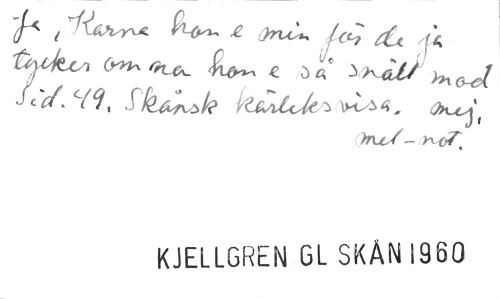 Ja, Karna hon e min för de ja
tycker om na hon e så snäll mod
Sid. 49. Skånsk kärleksvisa. mej.
mel-not.
KJELLGREN GL SKÅN 1960